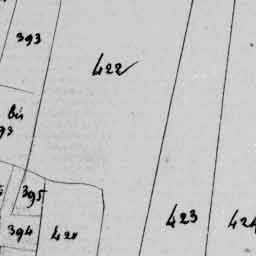 393
422
bis
93
395
423
424
394
421